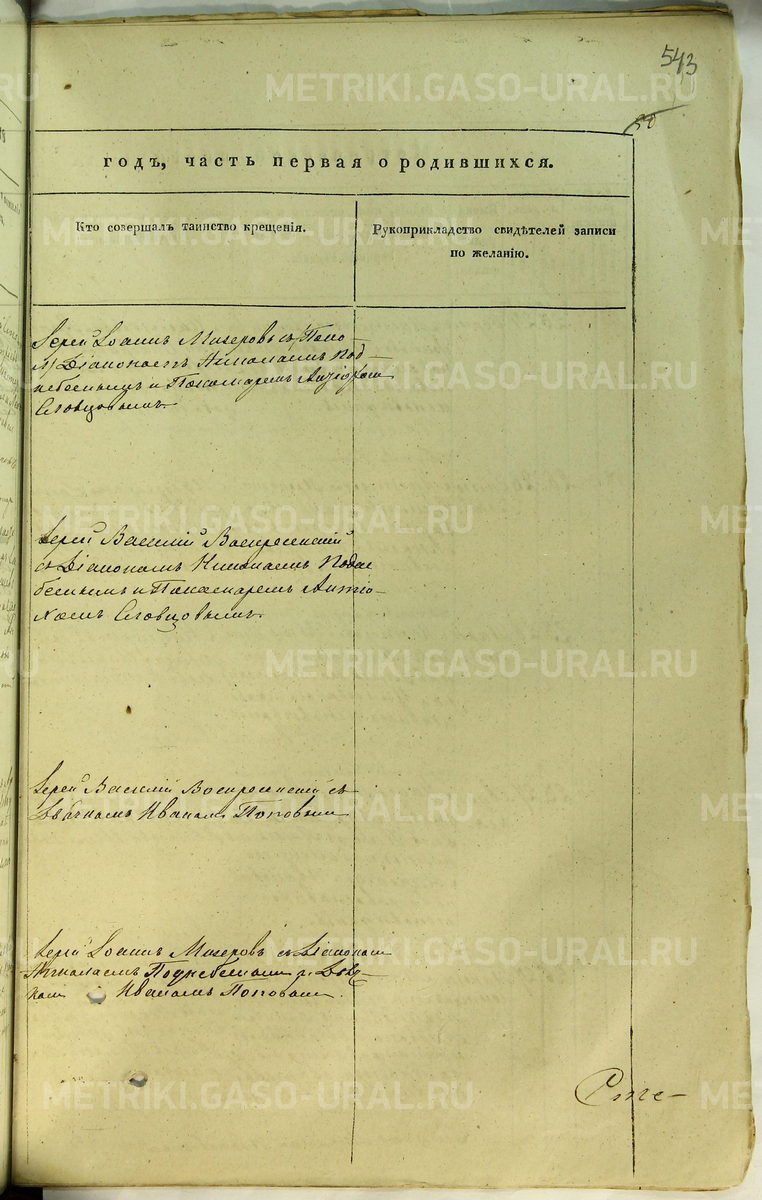 543
годъ, часть первая о родившихся.
Кто совершалъ таинство крещенія.
Рукоприкладство свидѣтелей записи
по желанію.
Іерей Іоаннъ Мизеровъ съ
Діакономъ Николаемъ Под-
небеснымъ и Пономаремъ
Словцовымъ.
Іерей Василій Воскресенскій
съ Діакономъ Николаемъ Подне
беснымъ и Пономаремъ Антіо-
хомъ Словцовымъ.
Іерей Василій Воскресенскій съ
Дьячкомъ Иваномъ Поповымъ
Іерей Іоаннъ Мизеровъ съ Діакономъ
Николаемъ Поднебеснымъ и Дьяч-
комъ Иваномъ Поповымъ.
METRIKI.GASO-URAL.RU